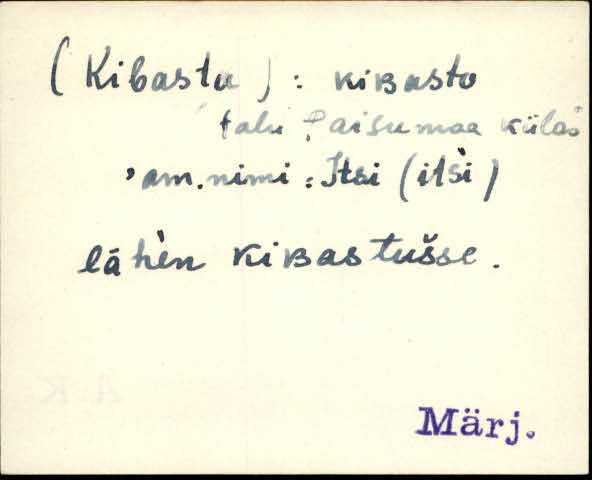 (Kibastu) : kiʙasto
talu Paisumaa külas
am.nimi : Itsi (itsi)
lähen kiʙastušse.
Märj.